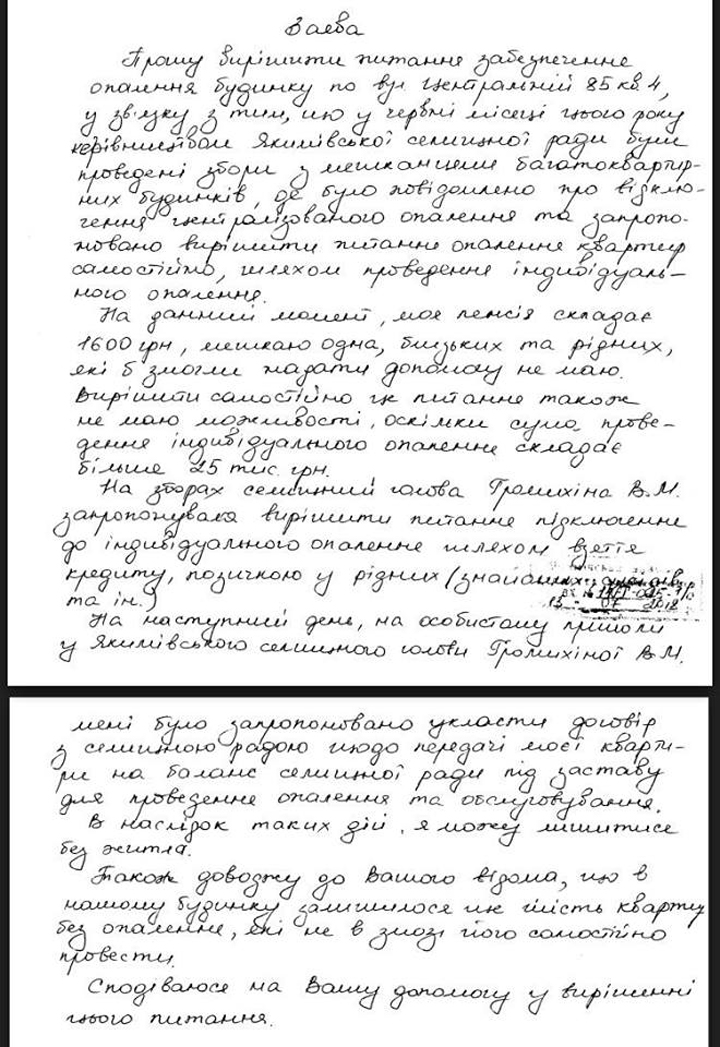 Заява
Прошу вирішити питання забезпечення
опалення будинку по вул Центральній 85 кв. 4,
у зв'язку з тим, що у червні місяці цього року
керівництвом Якимівської селищної ради були
проведені збори з мешканцями багатоквартир-
них будинків, де було повідомлено про відклю-
чення централізованого опалення та запропо-
новано вирішити питання опалення квартир
самостійно, шляхом проведення індивідуаль-
ного опалення.
На данний момент, моя пенсія складає
1600 грн, мешкаю одна, близьких та рідних,
які б змогли надати допомогу не маю.
Вирішити самостійно це питання також
не маю можливості, оскільки сума прове-
дення індивідуального опалення складає
більше 25 тис. грн.
На зборах селищний голова Громихіна В.М.
запропонувала вирішити питання підключення
до індивідуального опалення шляхом взяття
кредиту, позичкою у рідних (знайомих, сусідів
та ін.)
На наступний день, на особистому прийомі
у Якимівського селищного голови Громихіної В.М.
мені було запропоновано укласти договір
з селищною радою щодо передачі моєї кварти-
ри на баланс селищної ради під заставу
для проведення опалення та обслуговування.
В наслідок таких дій, я можу лишитися
без житла.
Також доводжу до Вашого відома, що в
нашому будинку залишилося ще шість квартир
без опалення, які не в змозі його самостійно
провести.
Сподіваюся на Вашу допомогу у вирішенні
цього питання.